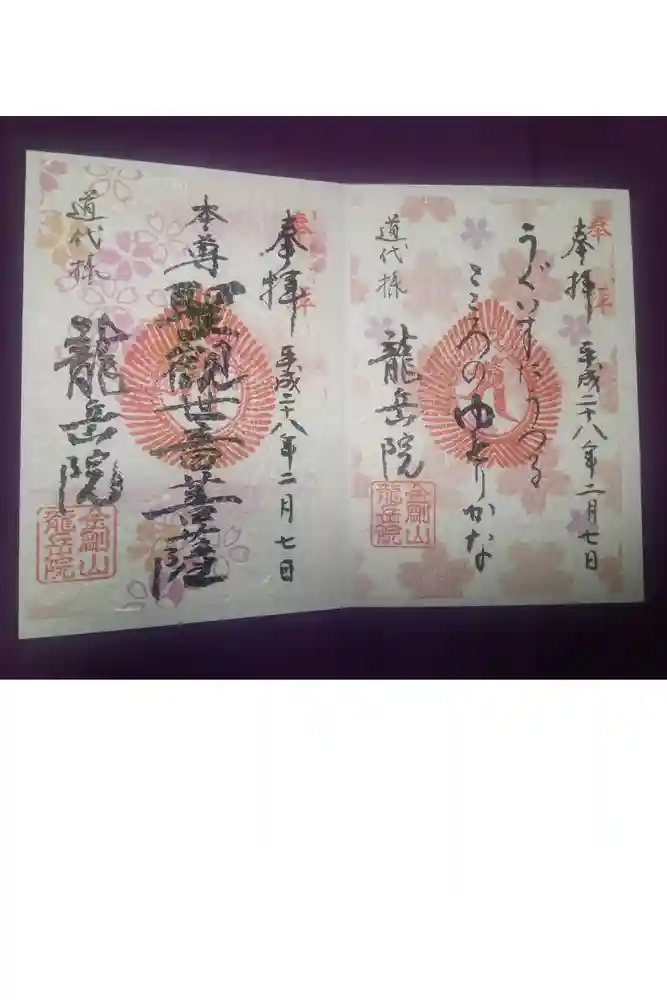 奉拝
平成二十八年二月七日
うぐいすたうつる
こころのゆとりかな
龍岳院
道代様
金剛山
龍岳院
奉拝
平成二十八年二月七日
本尊
聖観世音菩薩
龍岳院
道代様
金剛山
龍岳院